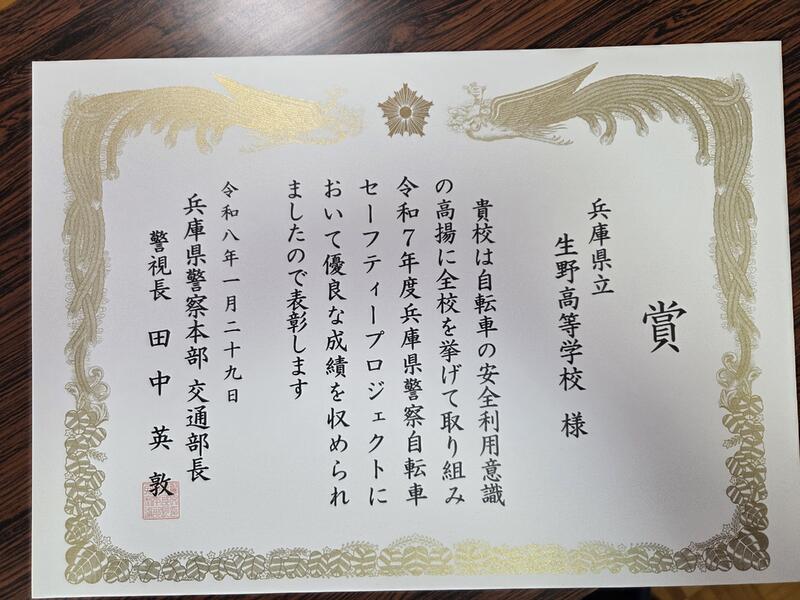 賞
兵庫県立
生野高等学校 様
貴校は自転車の安全利用意識
の高揚に全校を挙げて取り組み
令和7年度兵庫県警察自転車
セーフティープロジェクトに
おいて優良な成績を収められ
ましたので表彰します
令和八年一月二十九日
兵庫県警察本部 交通部長
警視長 田中英敦